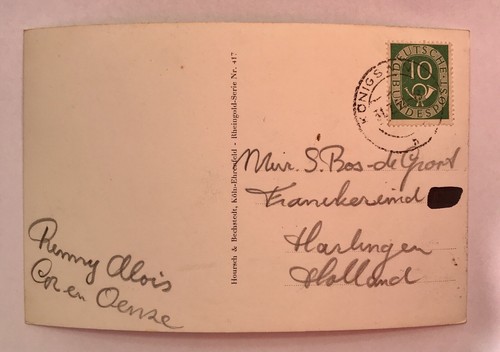 Hoursch & Bechstedt, Köln-Ehrenfeld · Rheingold-Serie Nr. 417
DEUTSCHE
10
BUNDESPOST
KÖNIGS
Mevr. S. Bos-de Groot
Franekereind
Harlingen
Holland
Alois
Cor en